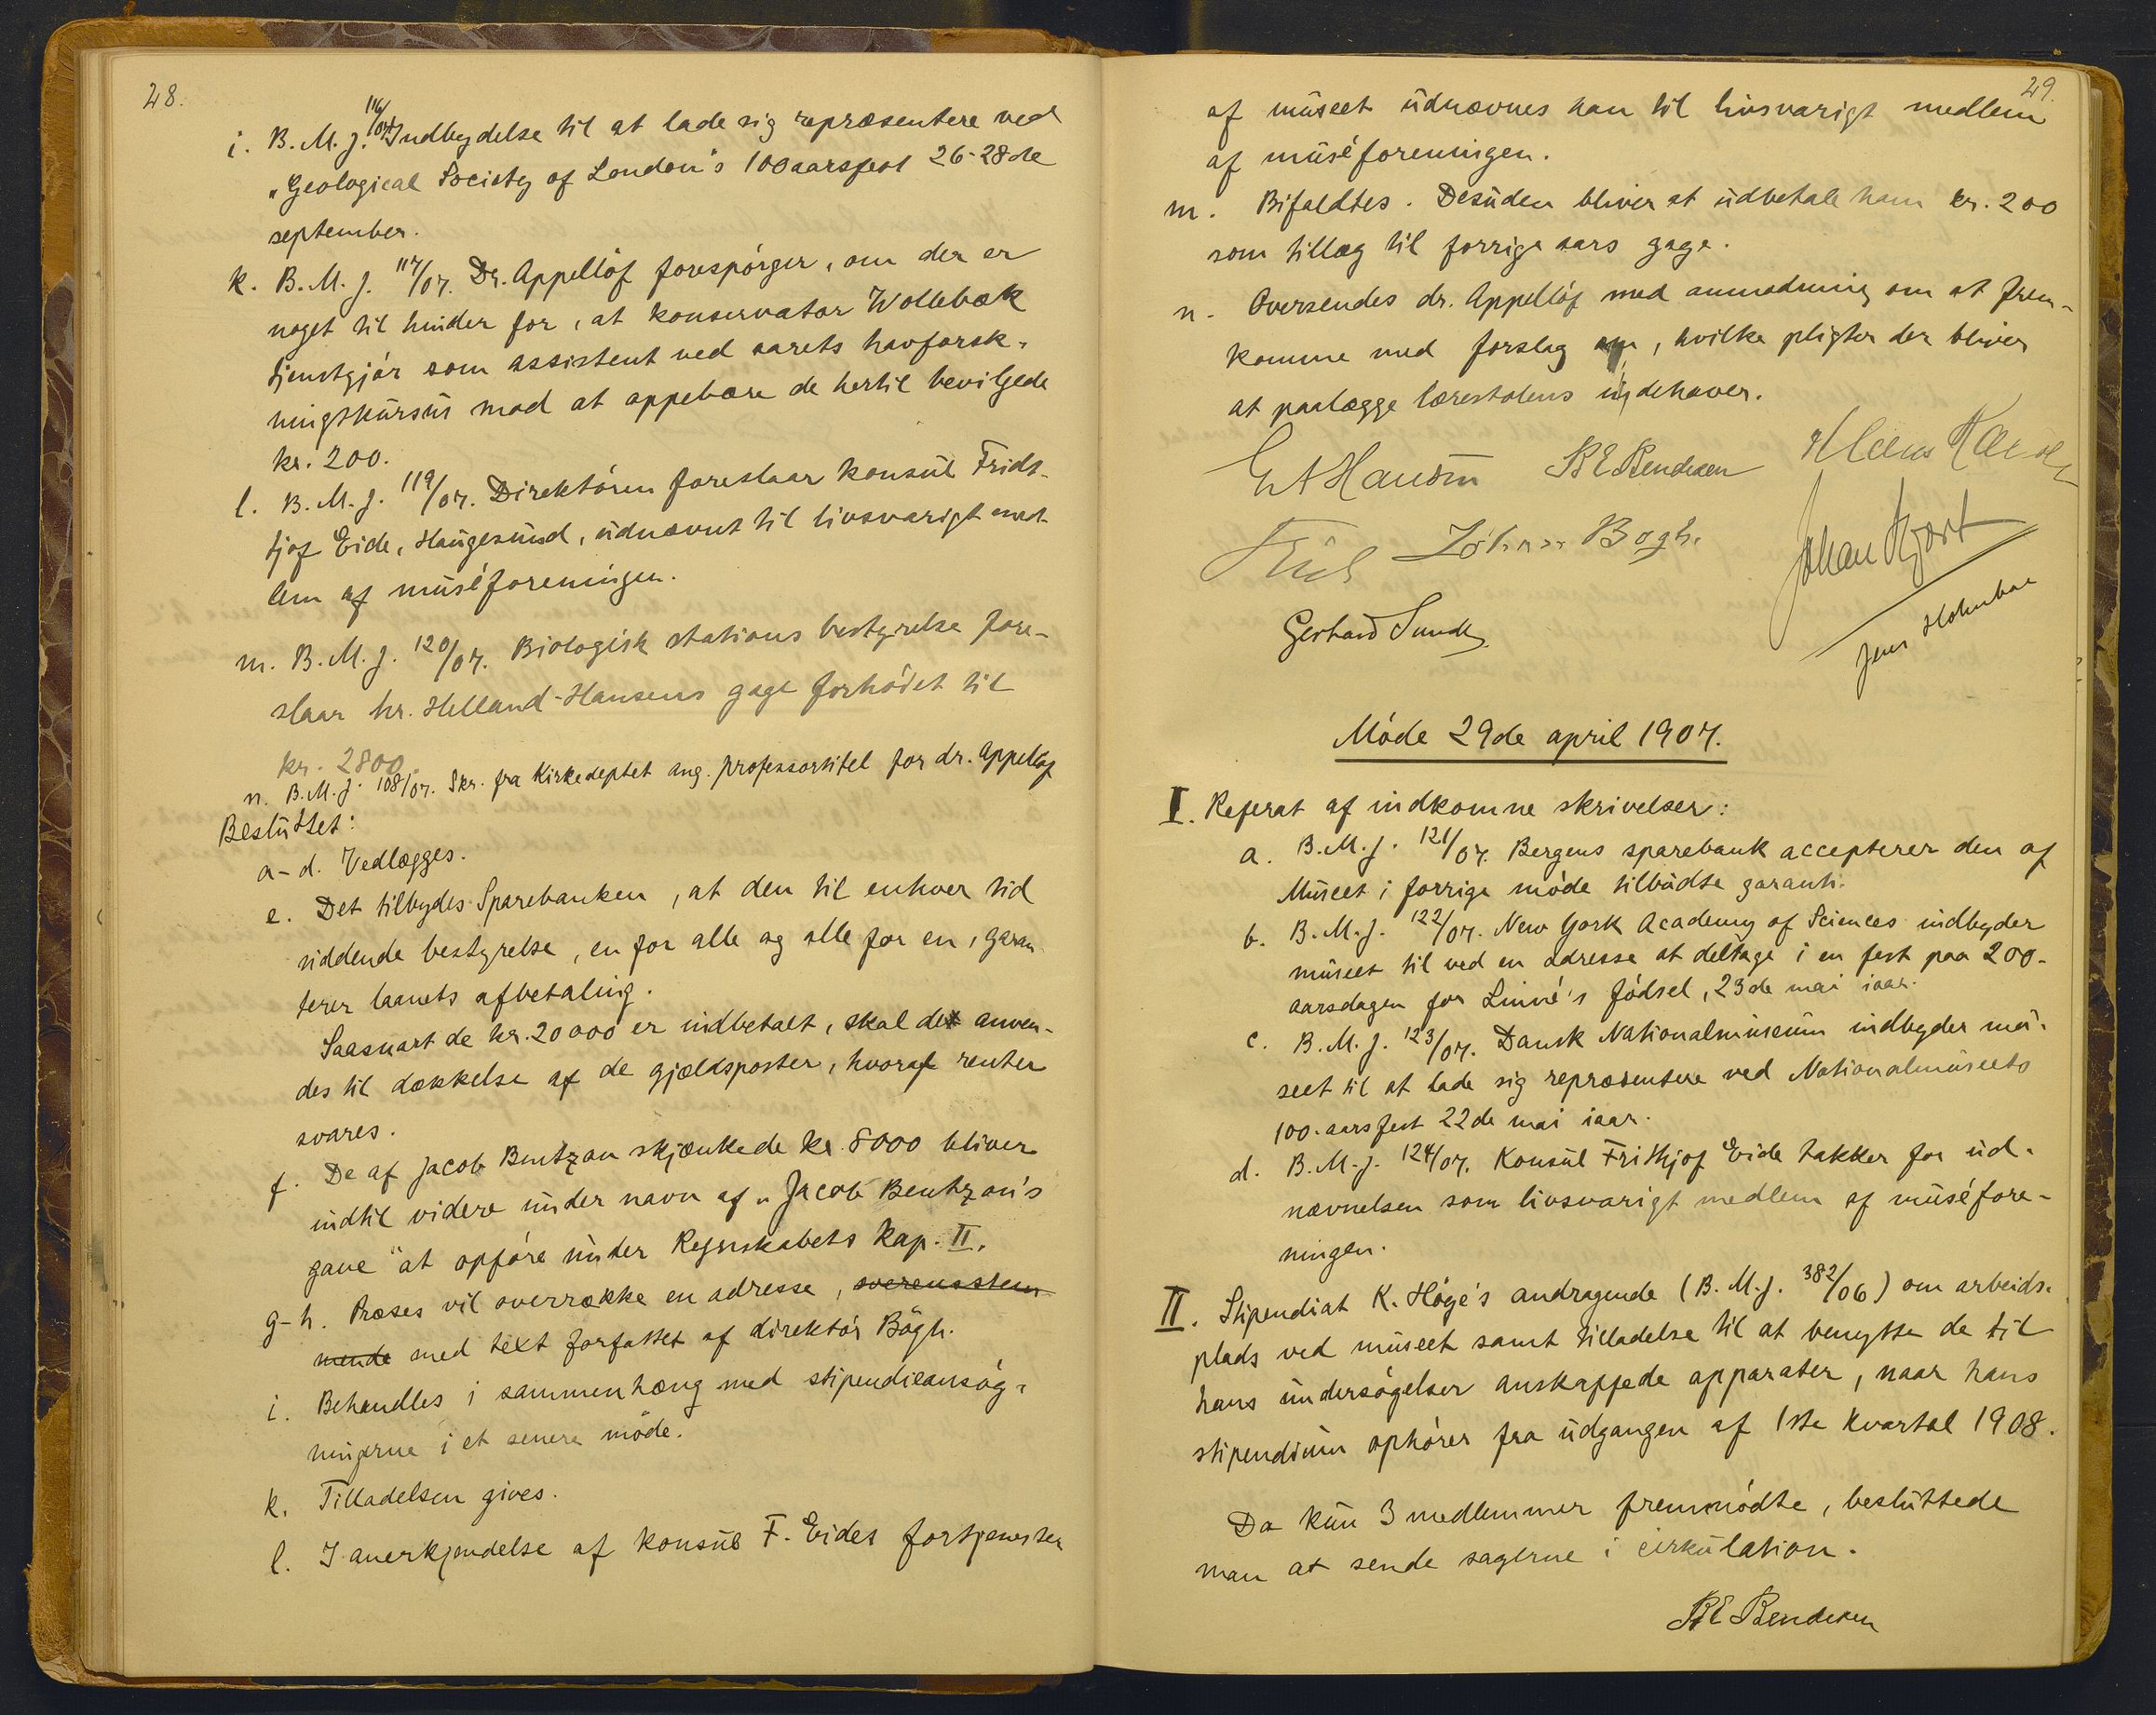 28.
i. B. M. J. 116/07. Indbydelse til at lade sig repræsentere ved
"Geological Society of London's 100aarsfest 26-28de
september.
k. B. M. J. 117/07. Dr. Appellöf forespörger, om der er
noget til hinder for, at konservator Wollebæk
tjenstgjör som assistent ved aarets havforsk-
ningskursus mod at oppebære de hertil bevilgede
kr. 200.
l. B. M. J. 119/07. Direktören foreslaar konsul Fridt-
tjof Eide, Haugesund, udnævnt til livsvarigt med-
lem af muséforeningen.
m. B. M. J. 120/07. Biologisk stations bestyrelse fore-
slaar hr. Helland-Hansens gage forhöiet til
kr. 2800.
n. B. M. J. 108/07. Skr. fra Kirkedeptet ang. professortitel for dr. Appellöf
Besluttet:
a-d. Vedlægges.
e. Det tilbydes Sparebanken, at den til enhver tid
siddende bestyrelse, en for alle og alle for en, garan-
terer laanets afbetaling.
Saasnart de kr. 20000 er indbetalt, skal det anven-
des til dækkelse af de gjældsposter, hvoraf renter
svares.
f. De af Jacob Bentzon skjænkede kr. 8000 bliver
indtil videre under navn af "Jacob Bentzon's
gave" at opföre under Regnskabets Kap. II.
g-h. Præses vil overrække en adresse, overensstem-
mende med text forfattet af direktör Bögh.
i. Behandles i sammenhæng med stipendieansög-
ningerne i et senere möde.
k. Tilladelsen gives.
l. I anerkjendelse af konsul F. Eides fortjenester
29.
af museet udnævnes han til livsvarigt medlem
af muséforeningen.
m. Bifaldtes. Desuden bliver at udbetale ham kr. 200
som tillæg til forrige aars gage.
n. Oversendes dr. Appellöf med anmodning om at frem-
komme med forslag om, hvilke pligter der bliver
at paalægge lærestolens indehaver.
G A Hansen B E Bendixen
Johan Bøgh. Johan Hjort
Gerhard Sundt Jens Holmboe
Möde 29de april 1907.
I. Referat af indkomne skrivelser:
a. B. M. J. 121/07. Bergens sparebank accepterer den af
Museet i forrige möde tilbudte garanti.
b. B. M. J. 122/07. New York Academy of Sciences indbyder
museet til ved en adresse at deltage i en fest paa 200-
aarsdagen for Linné's födsel, 23de mai iaar.
c. B. M. J. 123/07. Dansk Nationalmuseum indbyder mu-
seet til at lade sig repræsentere ved Nationalmuseets
100-aarsfest 22de mai iaar.
d. B. M. J. 124/07. Konsul Frithjof Eide takker for ud-
nævnelsen som livsvarigt medlem af muséfore-
ningen.
II. Stipendiat K. Höge's andragende (B. M. J. 382/06) om arbeids-
plads ved museet samt tilladelse til at benytte de til
hans undersögelser anskaffede apparater, naar hans
stipendium ophörer fra udgangen af 1ste kvartal 1908.
Da kun 3 medlemmer fremmödte, besluttede
man at sende sagerne i cirkulation.
B E Bendixen